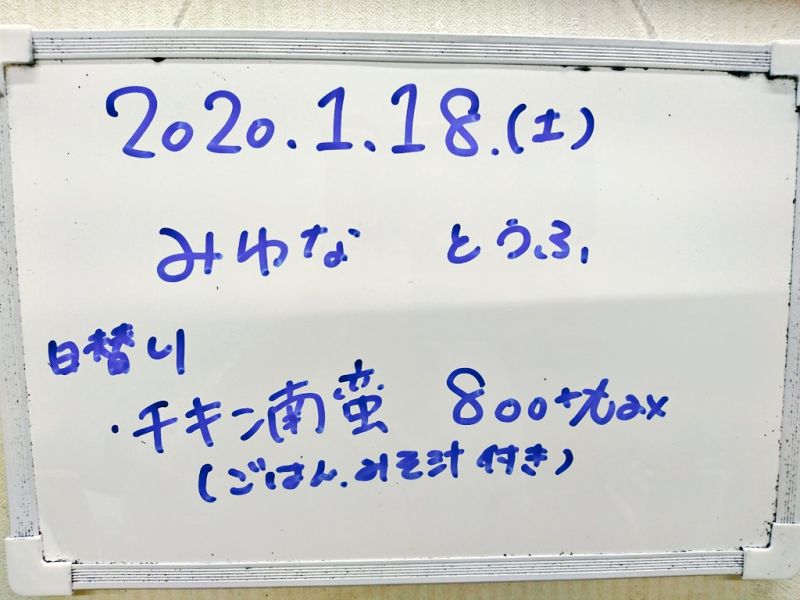 2020.1.18.(土)
みゆな とうふ
日替り
・チキン南蛮 800+tax
(ごはん、みそ汁付き)